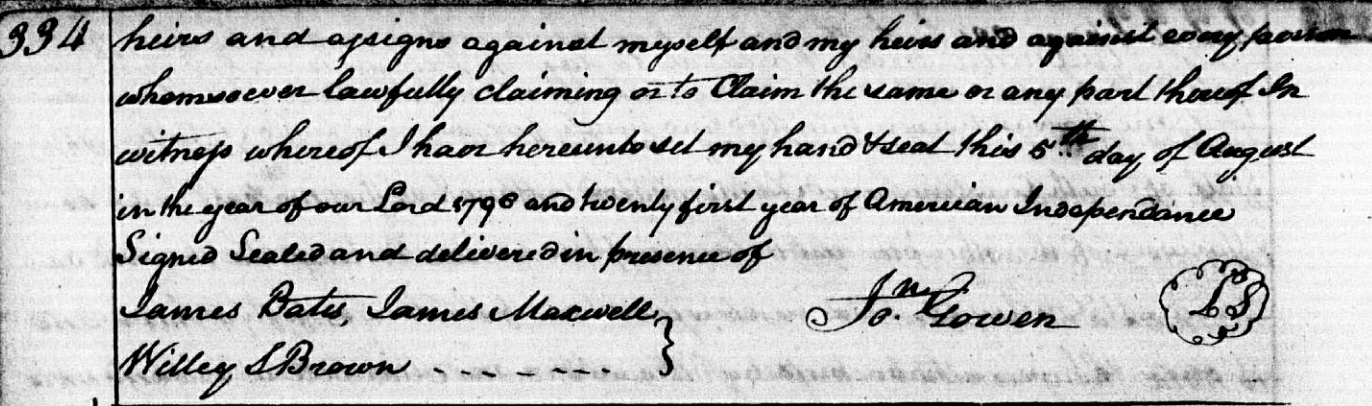 334
heirs and assigns against myself and my heirs and against every person
whomsoever lawfully claiming or to Claim the same or any part thereof In
witness whereof I have hereunto set my hand & seal this 5th day of August
in the year of our Lord 1796 and twenty first year of American Independance
Signed Sealed and delivered in presence of
James Bates, James Maxwell
Willey S Brown - - - - - - -
Jn.o Gowen
LS